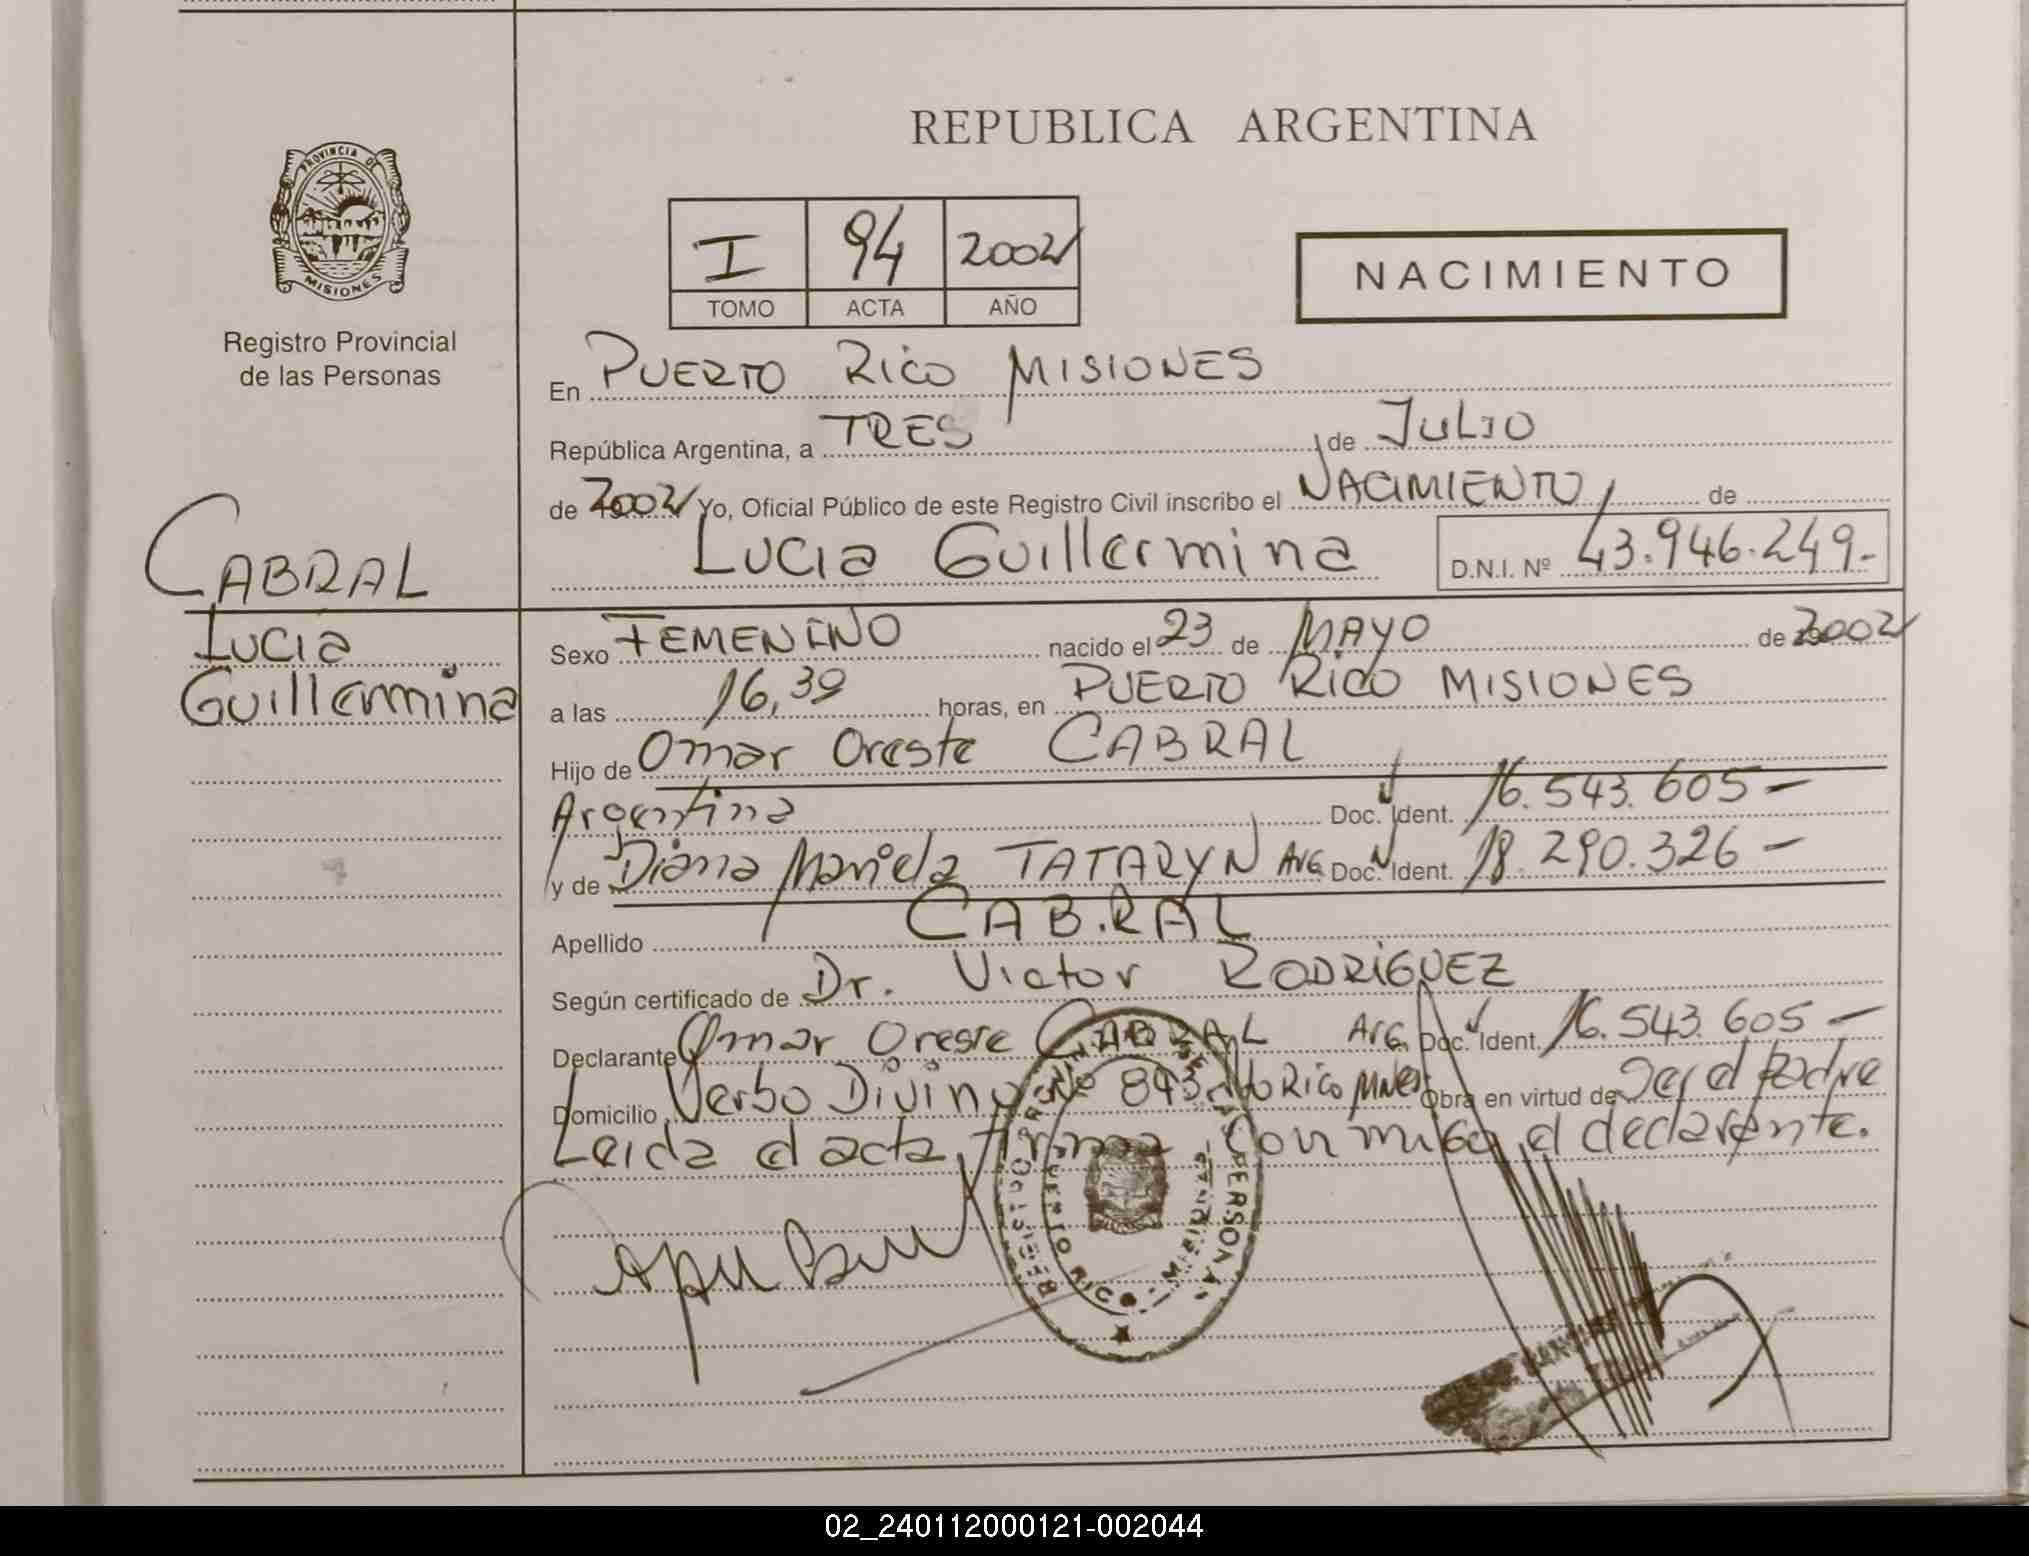 PROVINCIA DE
MISIONES
Registro Provincial
de las Personas
CABRAL
Lucia
Guillermina
REPUBLICA ARGENTINA
I 94 2002
TOMO ACTA AÑO
NACIMIENTO
En PUERTO RICO MISIONES
República Argentina, a TRES de JULIO
de 2002 Yo, Oficial Público de este Registro Civil inscribo el NACIMIENTO de
Lucia Guillermina D.N.I. Nº 43.946.249.-
Sexo FEMENINO nacido el 23 de MAYO de 2002
a las 16,39 horas, en PUERTO RICO MISIONES
Hijo de Omar Oreste CABRAL
Argentina Doc. Ident. 16.543.605-
y de Diana Mariela TATARYN ARG. Doc. Ident. 18.290.326-
Apellido CABRAL
Según certificado de Dr. Victor RODRIGUEZ
Declarante Omar Oreste CABRAL ARG. Doc. Ident. 16.543.605-
Domicilio Verbo Divino Nº 843 Pto Rico Mnes Obra en virtud de Ser el Padre
Leida el acta, firma conmigo el declarante.
REGISTRO PROVINCIAL DE LAS PERSONAS
PUERTO RICO - MISIONES
02_240112000121-002044